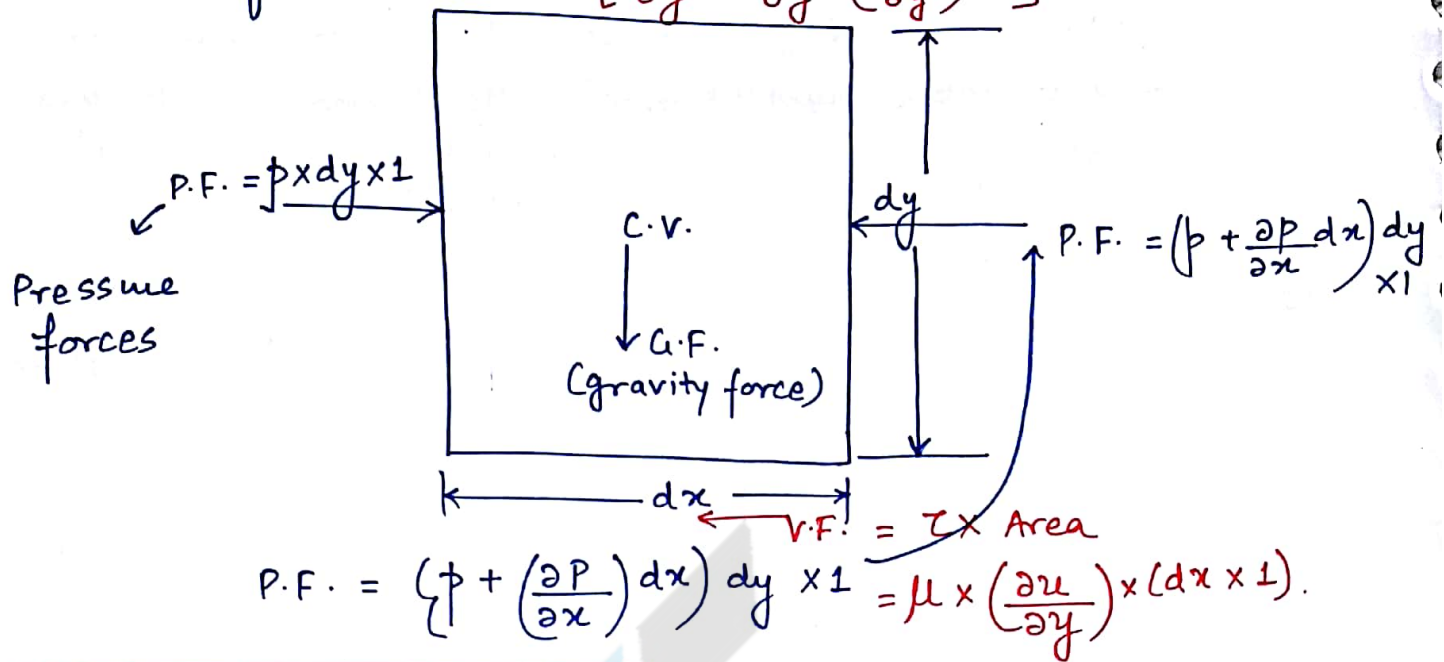 P.F. = p×dy×1
Pressure
forces
C.V.
G.F.
(gravity force)
dy
P.F. = (p + ∂p/∂x dx) dy
×1
dx
V.F. = τ × Area
P.F. = {p + (∂P/∂x) dx) dy ×1
= μ × (∂u/∂y) × (dx × 1).